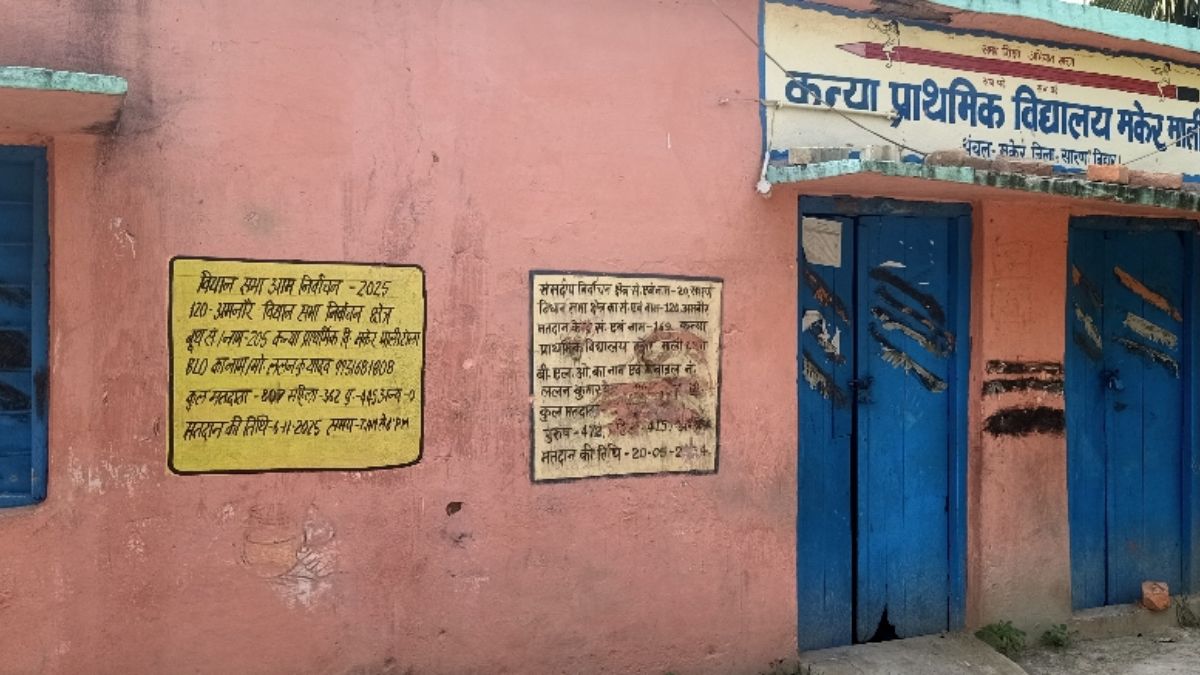 सब पढ़ें सब बढ़ें
कन्या प्राथमिक विद्यालय मकेर माली
अंचल- मकेर जिला- सारण बिहार
विधान सभा आम निर्वाचन - 2025
120- अमनौर विधान सभा निर्वाचन क्षेत्र
बूथ सं०/नाम-205 कन्या प्राथमिक वि० मकेर मालीटोला
BLO का नाम/मो०
कुल मतदाता - महिला-362 पु०-445 अन्य-0
मतदान की तिथि-6-11-2025 समय-7AM से 6PM
संसदीय निर्वाचन क्षेत्र सं. एवं नाम-20, सारण
विधान सभा क्षेत्र का सं. एवं नाम-120, अमनौर
मतदान केन्द्र सं. एवं नाम-169, कन्या
प्राथमिक विद्यालय मकेर माली टोला
बी. एल. ओ. का नाम एवं मोबाइल नं.
ललन कुमार
कुल मतदाता
पुरुष-472, 415,
मतदान की तिथि - 20-05-2024.